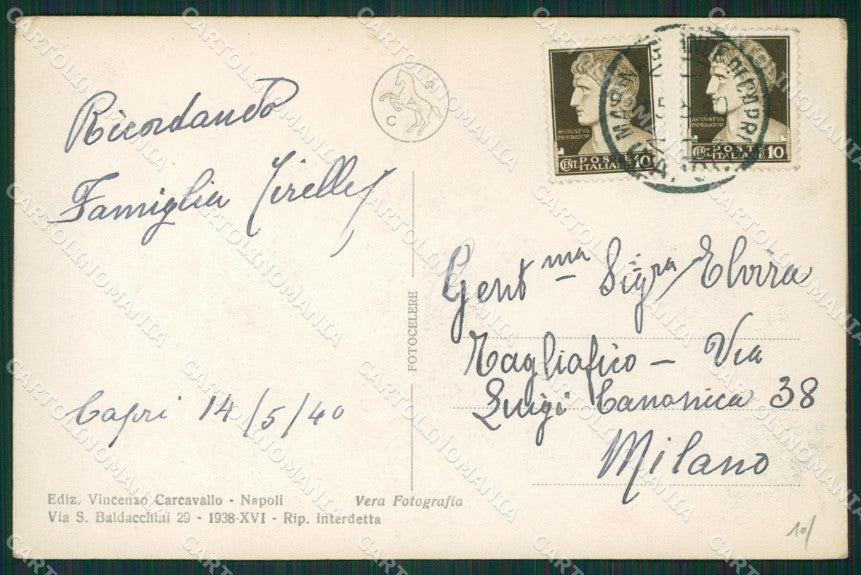 Ricordando
Famiglia Tirelli
Capri 14/5/40
Ediz. Vincenzo Carcavallo - Napoli
Vera Fotografia
Via S. Baldacchini 29 - 1938-XVI - Rip. interdetta
FOTOCELERE
C
AVGVSTVS
IMPERATOR
CENT. POSTE 10
ITALIANE
AVGVSTVS
IMPERATOR
CENT. POSTE 10
ITALIANE
DI CAPRI
Gent ma Sigra Elvira
Tagliafico - Via
Luigi Canonica 38
Milano
10/
CARTOLINOMANIA